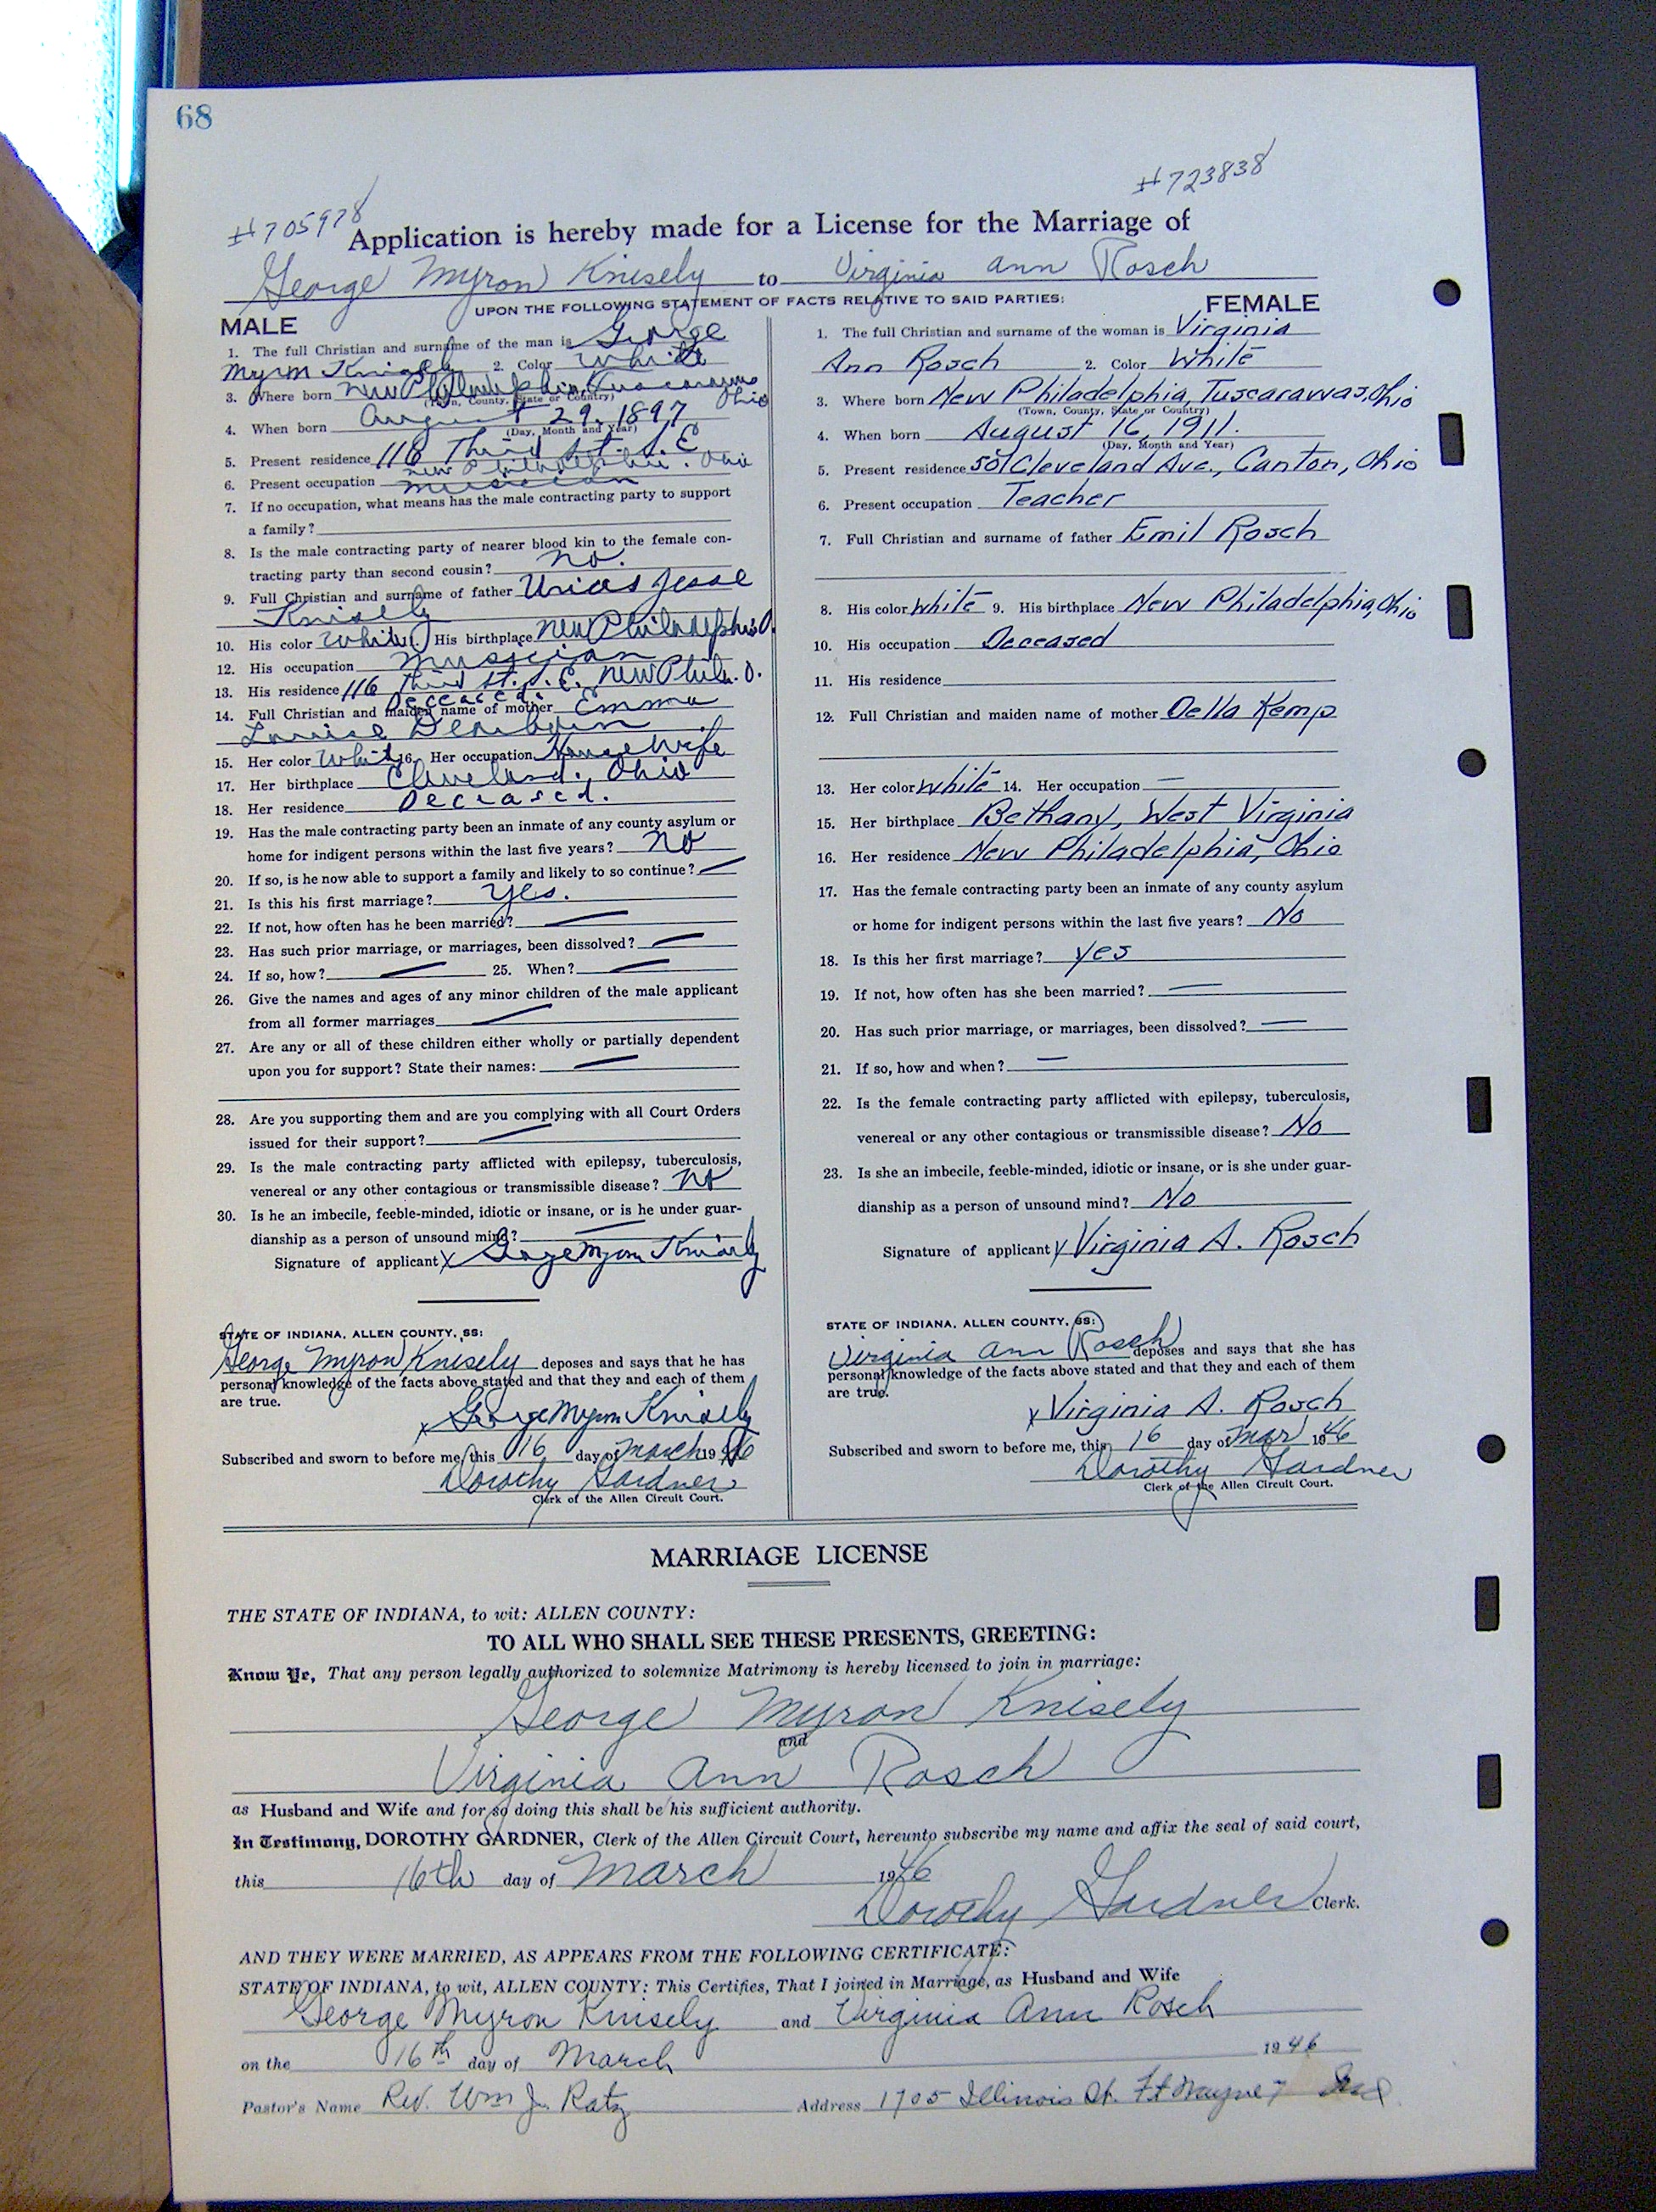 68
#723838
#705978
Application is hereby made for a License for the Marriage of
George Myron Knisely to Virginia Ann Rosch
UPON THE FOLLOWING STATEMENT OF FACTS RELATIVE TO SAID PARTIES:
MALE
1. The full Christian and surname of the man is George
Myron Knisely 2. Color White
3. Where born New Philadelphia, Tuscarawas Ohio
(Town, County, State or Country)
4. When born August 29, 1897
(Day, Month and Year)
5. Present residence 116 Third St. S. E.
New Philadelphia. Ohio
6. Present occupation musician
7. If no occupation, what means has the male contracting party to support
a family?
8. Is the male contracting party of nearer blood kin to the female con-
tracting party than second cousin? No.
9. Full Christian and surname of father Urias Jesse
Knisely
10. His color White 11. His birthplace New Philadelphia O.
12. His occupation Musician
13. His residence 116 Third St. S. E. New Phila. O.
Deceased.
14. Full Christian and maiden name of mother Emma
Louise
15. Her color White 16. Her occupation Housewife
17. Her birthplace Cleveland, Ohio
18. Her residence Deceased.
19. Has the male contracting party been an inmate of any county asylum or
home for indigent persons within the last five years? No
20. If so, is he now able to support a family and likely to so continue? —
21. Is this his first marriage? Yes.
22. If not, how often has he been married? —
23. Has such prior marriage, or marriages, been dissolved? —
24. If so, how? — 25. When? —
26. Give the names and ages of any minor children of the male applicant
from all former marriages —
27. Are any or all of these children either wholly or partially dependent
upon you for support? State their names: —
28. Are you supporting them and are you complying with all Court Orders
issued for their support? —
29. Is the male contracting party afflicted with epilepsy, tuberculosis,
venereal or any other contagious or transmissible disease? No
30. Is he an imbecile, feeble-minded, idiotic or insane, or is he under guar-
dianship as a person of unsound mind? —
Signature of applicant X George Myron Knisely
STATE OF INDIANA, ALLEN COUNTY, SS:
George Myron Knisely deposes and says that he has
personal knowledge of the facts above stated and that they and each of them
are true.
x George Myron Knisely
Subscribed and sworn to before me, this 16 day of March 1946
Dorothy Gardner
Clerk of the Allen Circuit Court.
FEMALE
1. The full Christian and surname of the woman is Virginia
Ann Rosch 2. Color White
3. Where born New Philadelphia, Tuscarawas, Ohio
(Town, County, State or Country)
4. When born August 16, 1911.
(Day, Month and Year)
5. Present residence 501 Cleveland Ave., Canton, Ohio
6. Present occupation Teacher
7. Full Christian and surname of father Emil Rosch
8. His color White 9. His birthplace New Philadelphia, Ohio
10. His occupation Deceased
11. His residence
12. Full Christian and maiden name of mother Della Kemp
13. Her color White 14. Her occupation —
15. Her birthplace Bethany, West Virginia
16. Her residence New Philadelphia, Ohio
17. Has the female contracting party been an inmate of any county asylum
or home for indigent persons within the last five years? No
18. Is this her first marriage? Yes
19. If not, how often has she been married? —
20. Has such prior marriage, or marriages, been dissolved? —
21. If so, how and when? —
22. Is the female contracting party afflicted with epilepsy, tuberculosis,
venereal or any other contagious or transmissible disease? No
23. Is she an imbecile, feeble-minded, idiotic or insane, or is she under guar-
dianship as a person of unsound mind? No
Signature of applicant X Virginia A. Rosch
STATE OF INDIANA, ALLEN COUNTY, SS:
Virginia Ann Rosch deposes and says that she has
personal knowledge of the facts above stated and that they and each of them
are true.
x Virginia A. Rosch
Subscribed and sworn to before me, this 16 day of Mar 1946
Dorothy Gardner
Clerk of the Allen Circuit Court.
MARRIAGE LICENSE
THE STATE OF INDIANA, to wit: ALLEN COUNTY:
TO ALL WHO SHALL SEE THESE PRESENTS, GREETING:
Know Ye, That any person legally authorized to solemnize Matrimony is hereby licensed to join in marriage:
George Myron Knisely
and
Virginia Ann Rosch
as Husband and Wife and for so doing this shall be his sufficient authority.
In Testimony, DOROTHY GARDNER, Clerk of the Allen Circuit Court, hereunto subscribe my name and affix the seal of said court,
this 16th day of March 1946
Dorothy Gardner Clerk.
AND THEY WERE MARRIED, AS APPEARS FROM THE FOLLOWING CERTIFICATE:
STATE OF INDIANA, to wit, ALLEN COUNTY: This Certifies, That I joined in Marriage, as Husband and Wife
George Myron Knisely and Virginia Ann Rosch
on the 16th day of March 1946
Pastor's Name Rev. Wm J. Ratz Address 1705 Illinois St. Ft Wayne 7 Ind